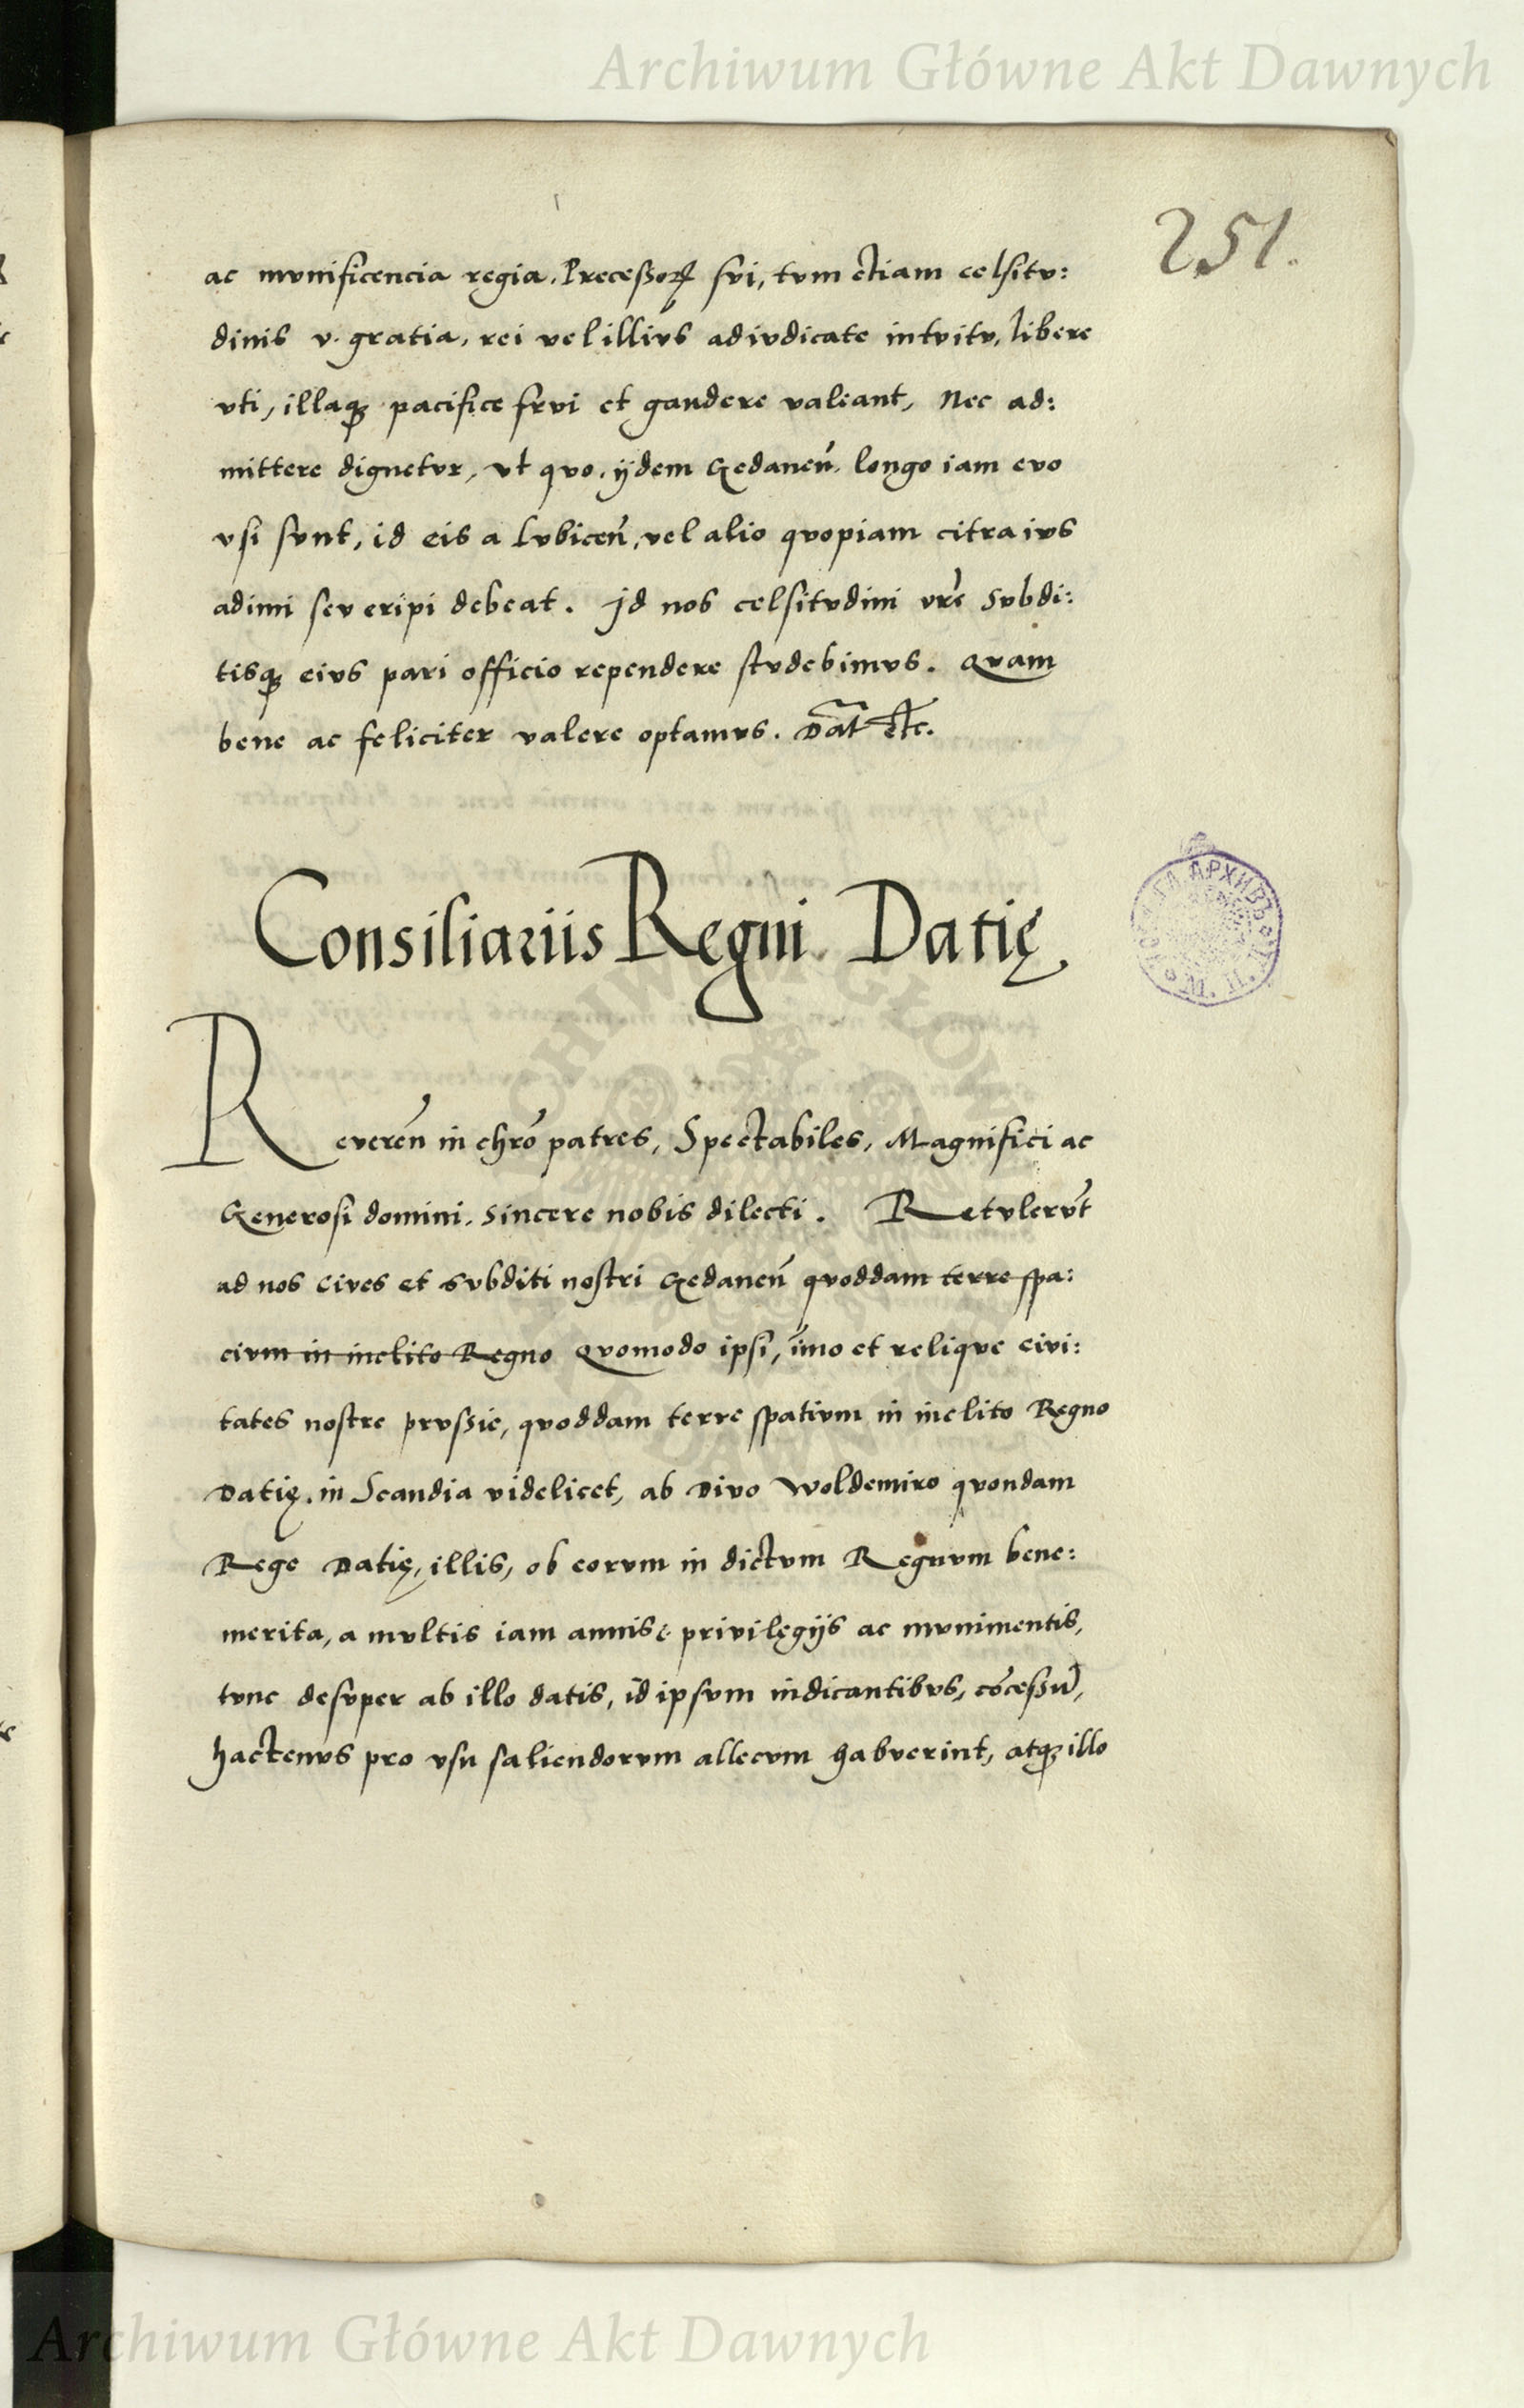 Archiwum Główne Akt Dawnych
251.
ac mvnificencia regia, Precessorꝝ svi, tvm etiam celsitv:
dinis v. gratia, rei vel illivs adivdicate intvitv, libere
vti, illaqꝫ pacifice frvi et gaudere valeant, Nec ad:
mittere dignetvr, vt qvo, ijdem Gedaneñ longo iam evo
vsi svnt, id eis a Lvbiceñ, vel alio qvopiam citra ivs
adimi sev eripi debeat. Id nos celsitvdini vrẽ Svbdi:
tisqꝫ eivs pari officio rependere stvdebimvs. Qvam
bene ac feliciter valere optamvs. Dat̃ etc.
Consiliariis Regni Datię
Reverẽn in chrõ patres, Spectabiles, Magnifici ac
Generosi domini, sincere nobis dilecti. Retvlerv̄t
ad nos cives et svbditi nostri Gedaneñ qvoddam terre spa:
civm in inclito Regno Qvomodo ipsi, im̃o et reliqve civi:
tates nostre prvssie, qvoddam terre spativm in inclito Regno
Datię, in Scandia videlicet, ab Divo Woldemiro qvondam
Rege Datię, illis, ob eorvm in dictvm Regnvm bene:
merita, a mvltis iam annis privilegijs ac mvnimentis,
tvnc desvper ab illo datis, id ipsvm indicantibvs, cõcessũ,
hactenvs pro vsu saliendorvm allecvm habverint, atqꝫ illo
Archiwum Główne Akt Dawnych